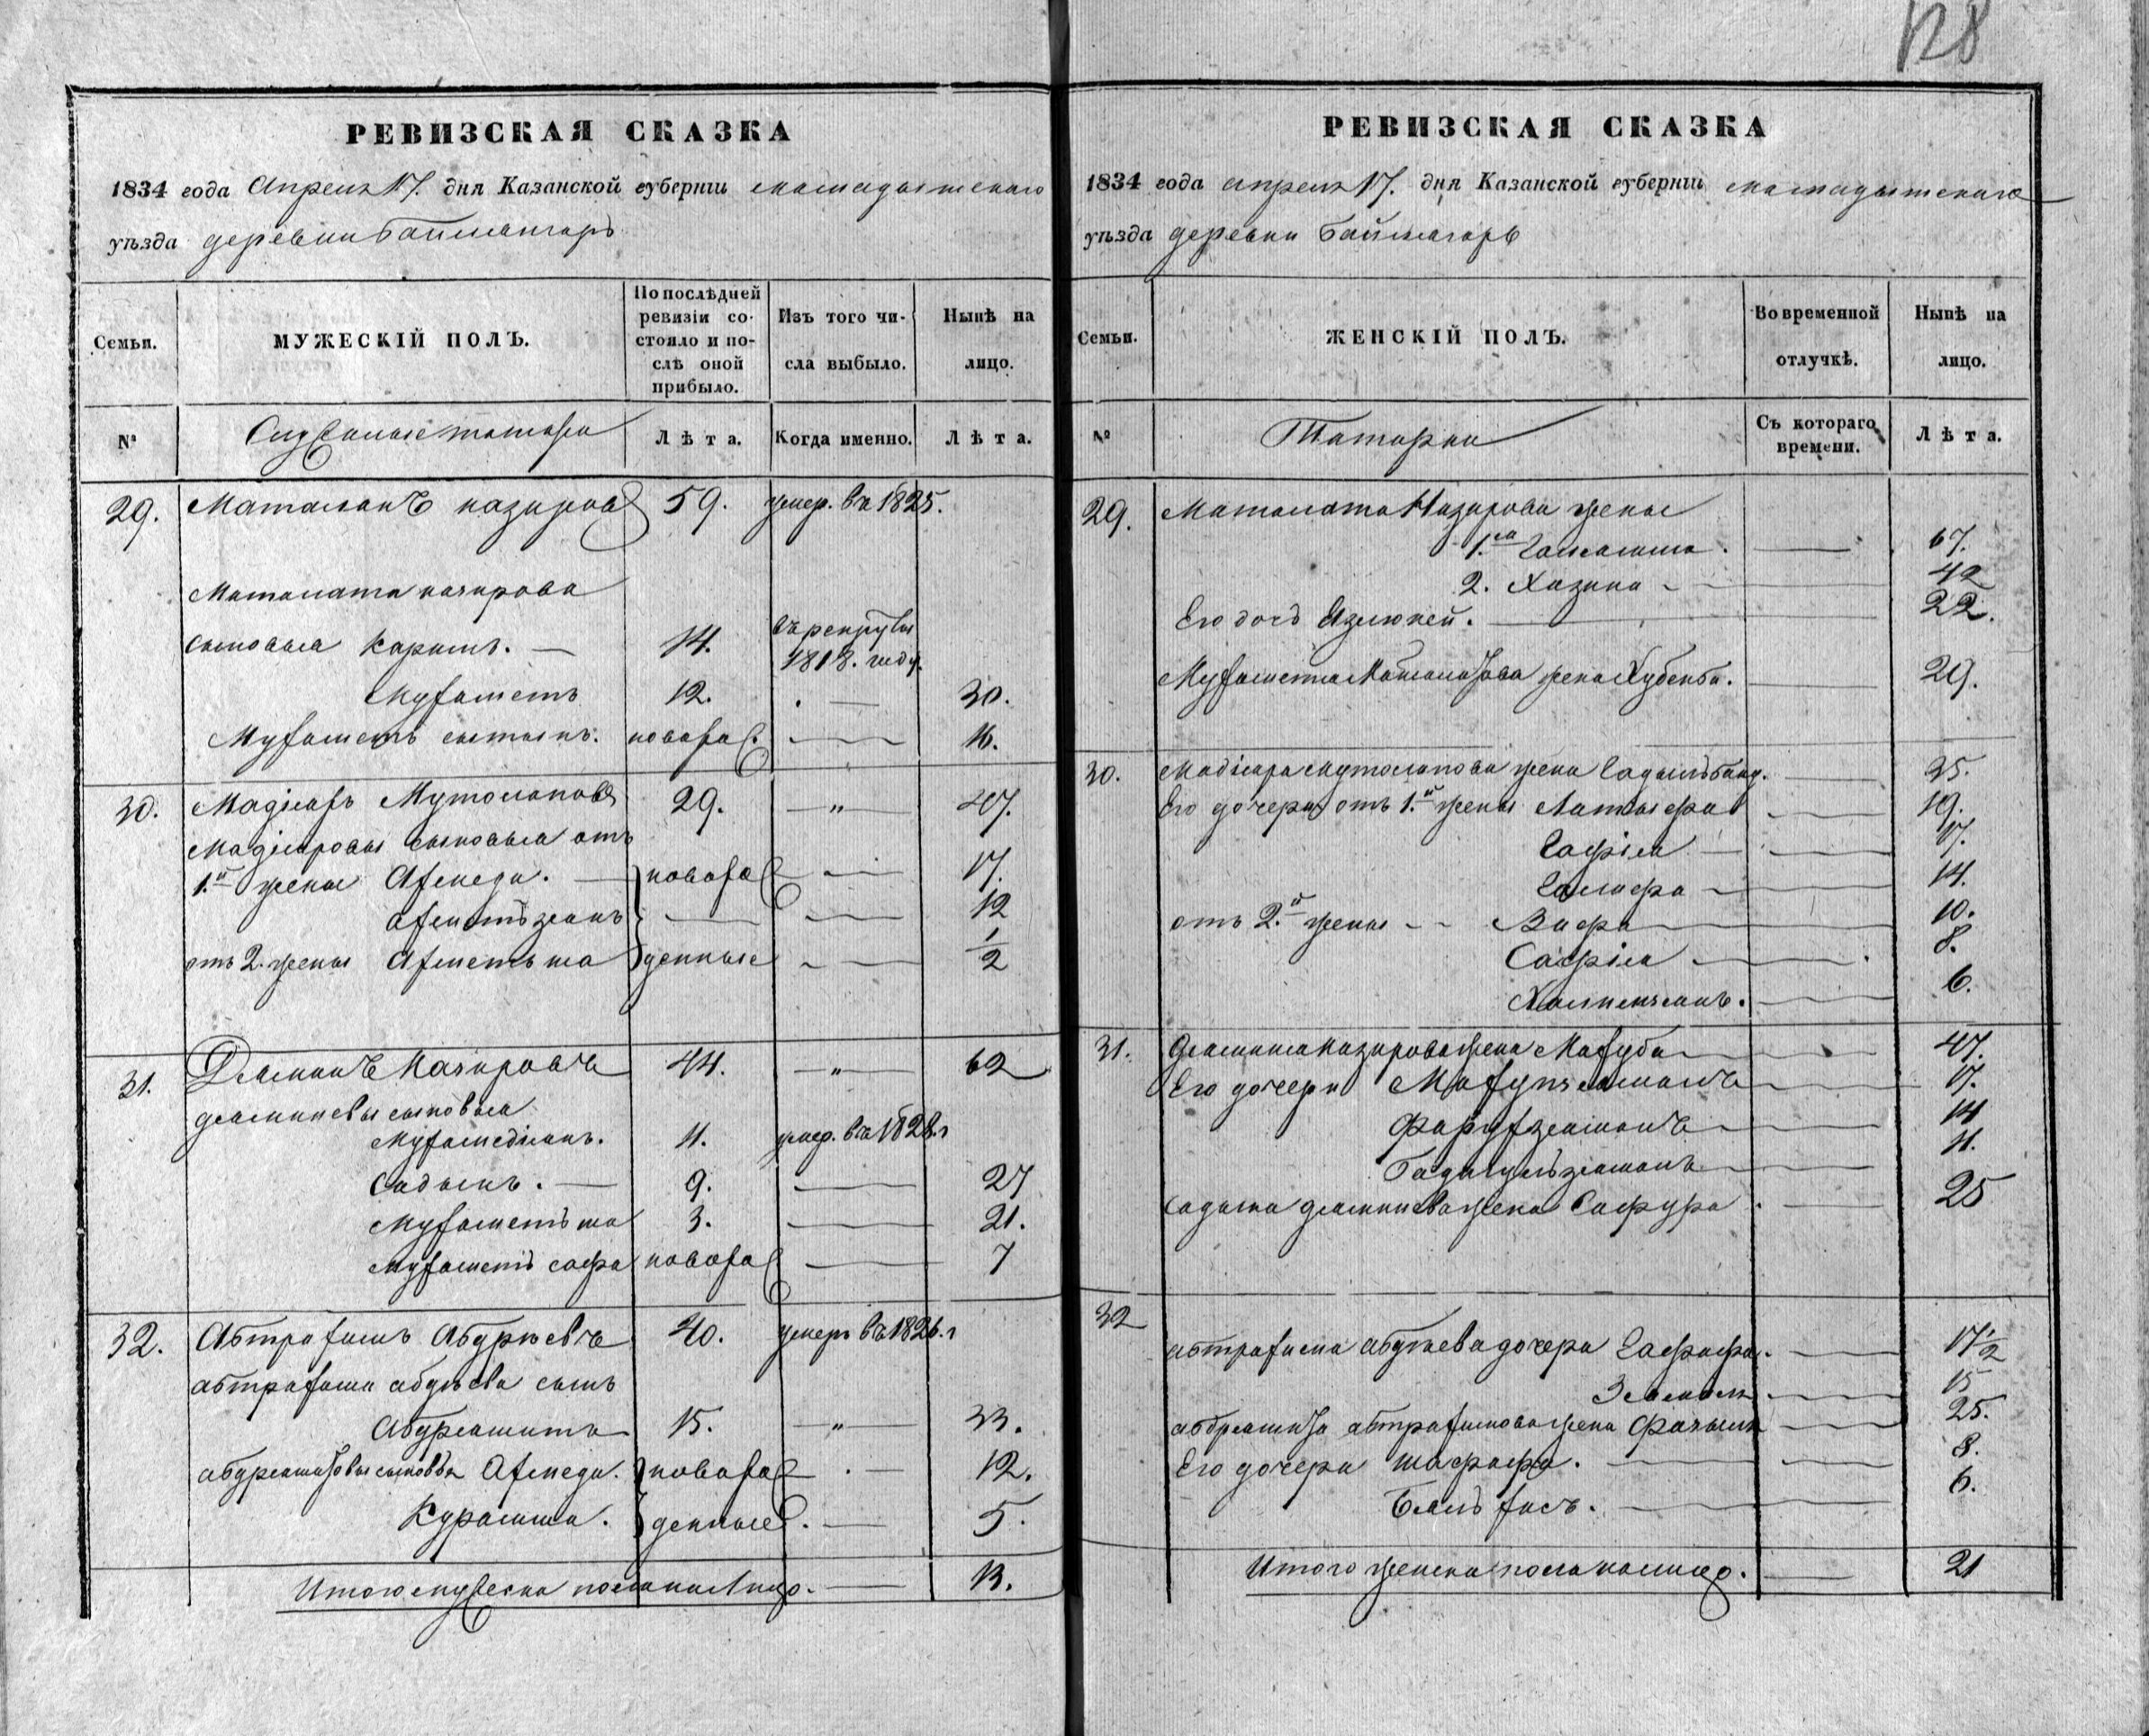 128
РЕВИЗСКАЯ СКАЗКА
1834 года Апреля 17. дня Казанской губернии мамадышскаго
уѣзда деревни Баимангоръ
Семьи.
МУЖЕСКІЙ ПОЛЪ.
По послѣдней
ревизіи со-
стояло и по-
слѣ оной
прибыло.
Изъ того чи-
сла выбыло.
Нынѣ на
лицо.
№
Служилые татары
Лѣта.
Когда именно.
Лѣта.
29. Маталапъ назировъ 59. умер. въ 1825.
Маталапа назирова
сыновья Каримъ. — 14. въ рекруты
1818. году.
Мухаметъ 12. — 30.
Мухаметъ новорож — 16.
30. Мадіяръ Муталаповъ 29. — " — 47.
Мадіяровы сыновья отъ
1.й жены Ахмеди. — новорож — 17.
Ахметъзянъ — 12
отъ 2. жены Ахметьша денные — 1/2
31. Деминъ Назировъ 44. — " — 62
деминевы сыновья
Мухамедіянъ. 11. умер. въ 1828. г
Садыкъ. — 9. — 27
Мухаметьша 3. — 21.
Мухаметь сафа новорож — 7
32. Абтрахимъ Абдуевъ 40. умеръ въ 1826. г
абтрахима абдуева сынъ
Абдрашитъ 15. — " — 33.
абдрашитовы сыновья Ахмеди. новорож — 12.
Курамша. денные. — 5.
Итого мужеска пола на лицо. — 13.
РЕВИЗСКАЯ СКАЗКА
1834 года апреля 17. дня Казанской губерніи мамадышскаго
уѣзда деревни Баймангоръ
Семьи.
ЖЕНСКІЙ ПОЛЪ.
Во временной
отлучкѣ.
Нынѣ на
лицо.
№
Татарки
Съ котораго
времени.
Лѣта.
29. Маталапа Назирова жены
1.я — 67.
2. Хазина — 42
Его дочь — 22.
Мухамета Маталапова жена Хубенба. — 29.
30. Мадіяра муталапова жена — 25.
Его дочери отъ 1.й жены Латыфа — 19.
Сафія — 17.
14.
отъ 2.й жены — Зифа — 10.
Сафія — 8.
6.
31. Демина Назирова жена Махуба — 47.
Его дочери — 17.
14
11.
садыка деминева жена Сафура — 25
32 абтрахима абдуева дочери — 17 1/2
15
абдрашита абтрахимова жена — 25.
Его дочери Шафафа. — 8.
6.
Итого женска пола на лицо. — 21